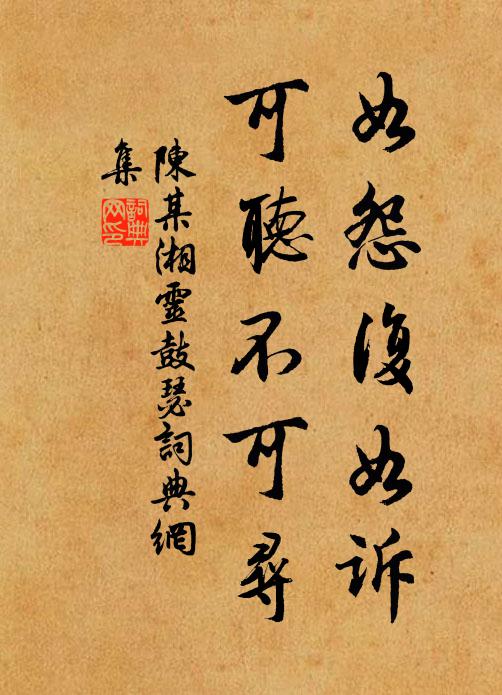 如怨復如訴
可聽不可尋
陳某湘靈鼓瑟詞典網
集
詞典網印